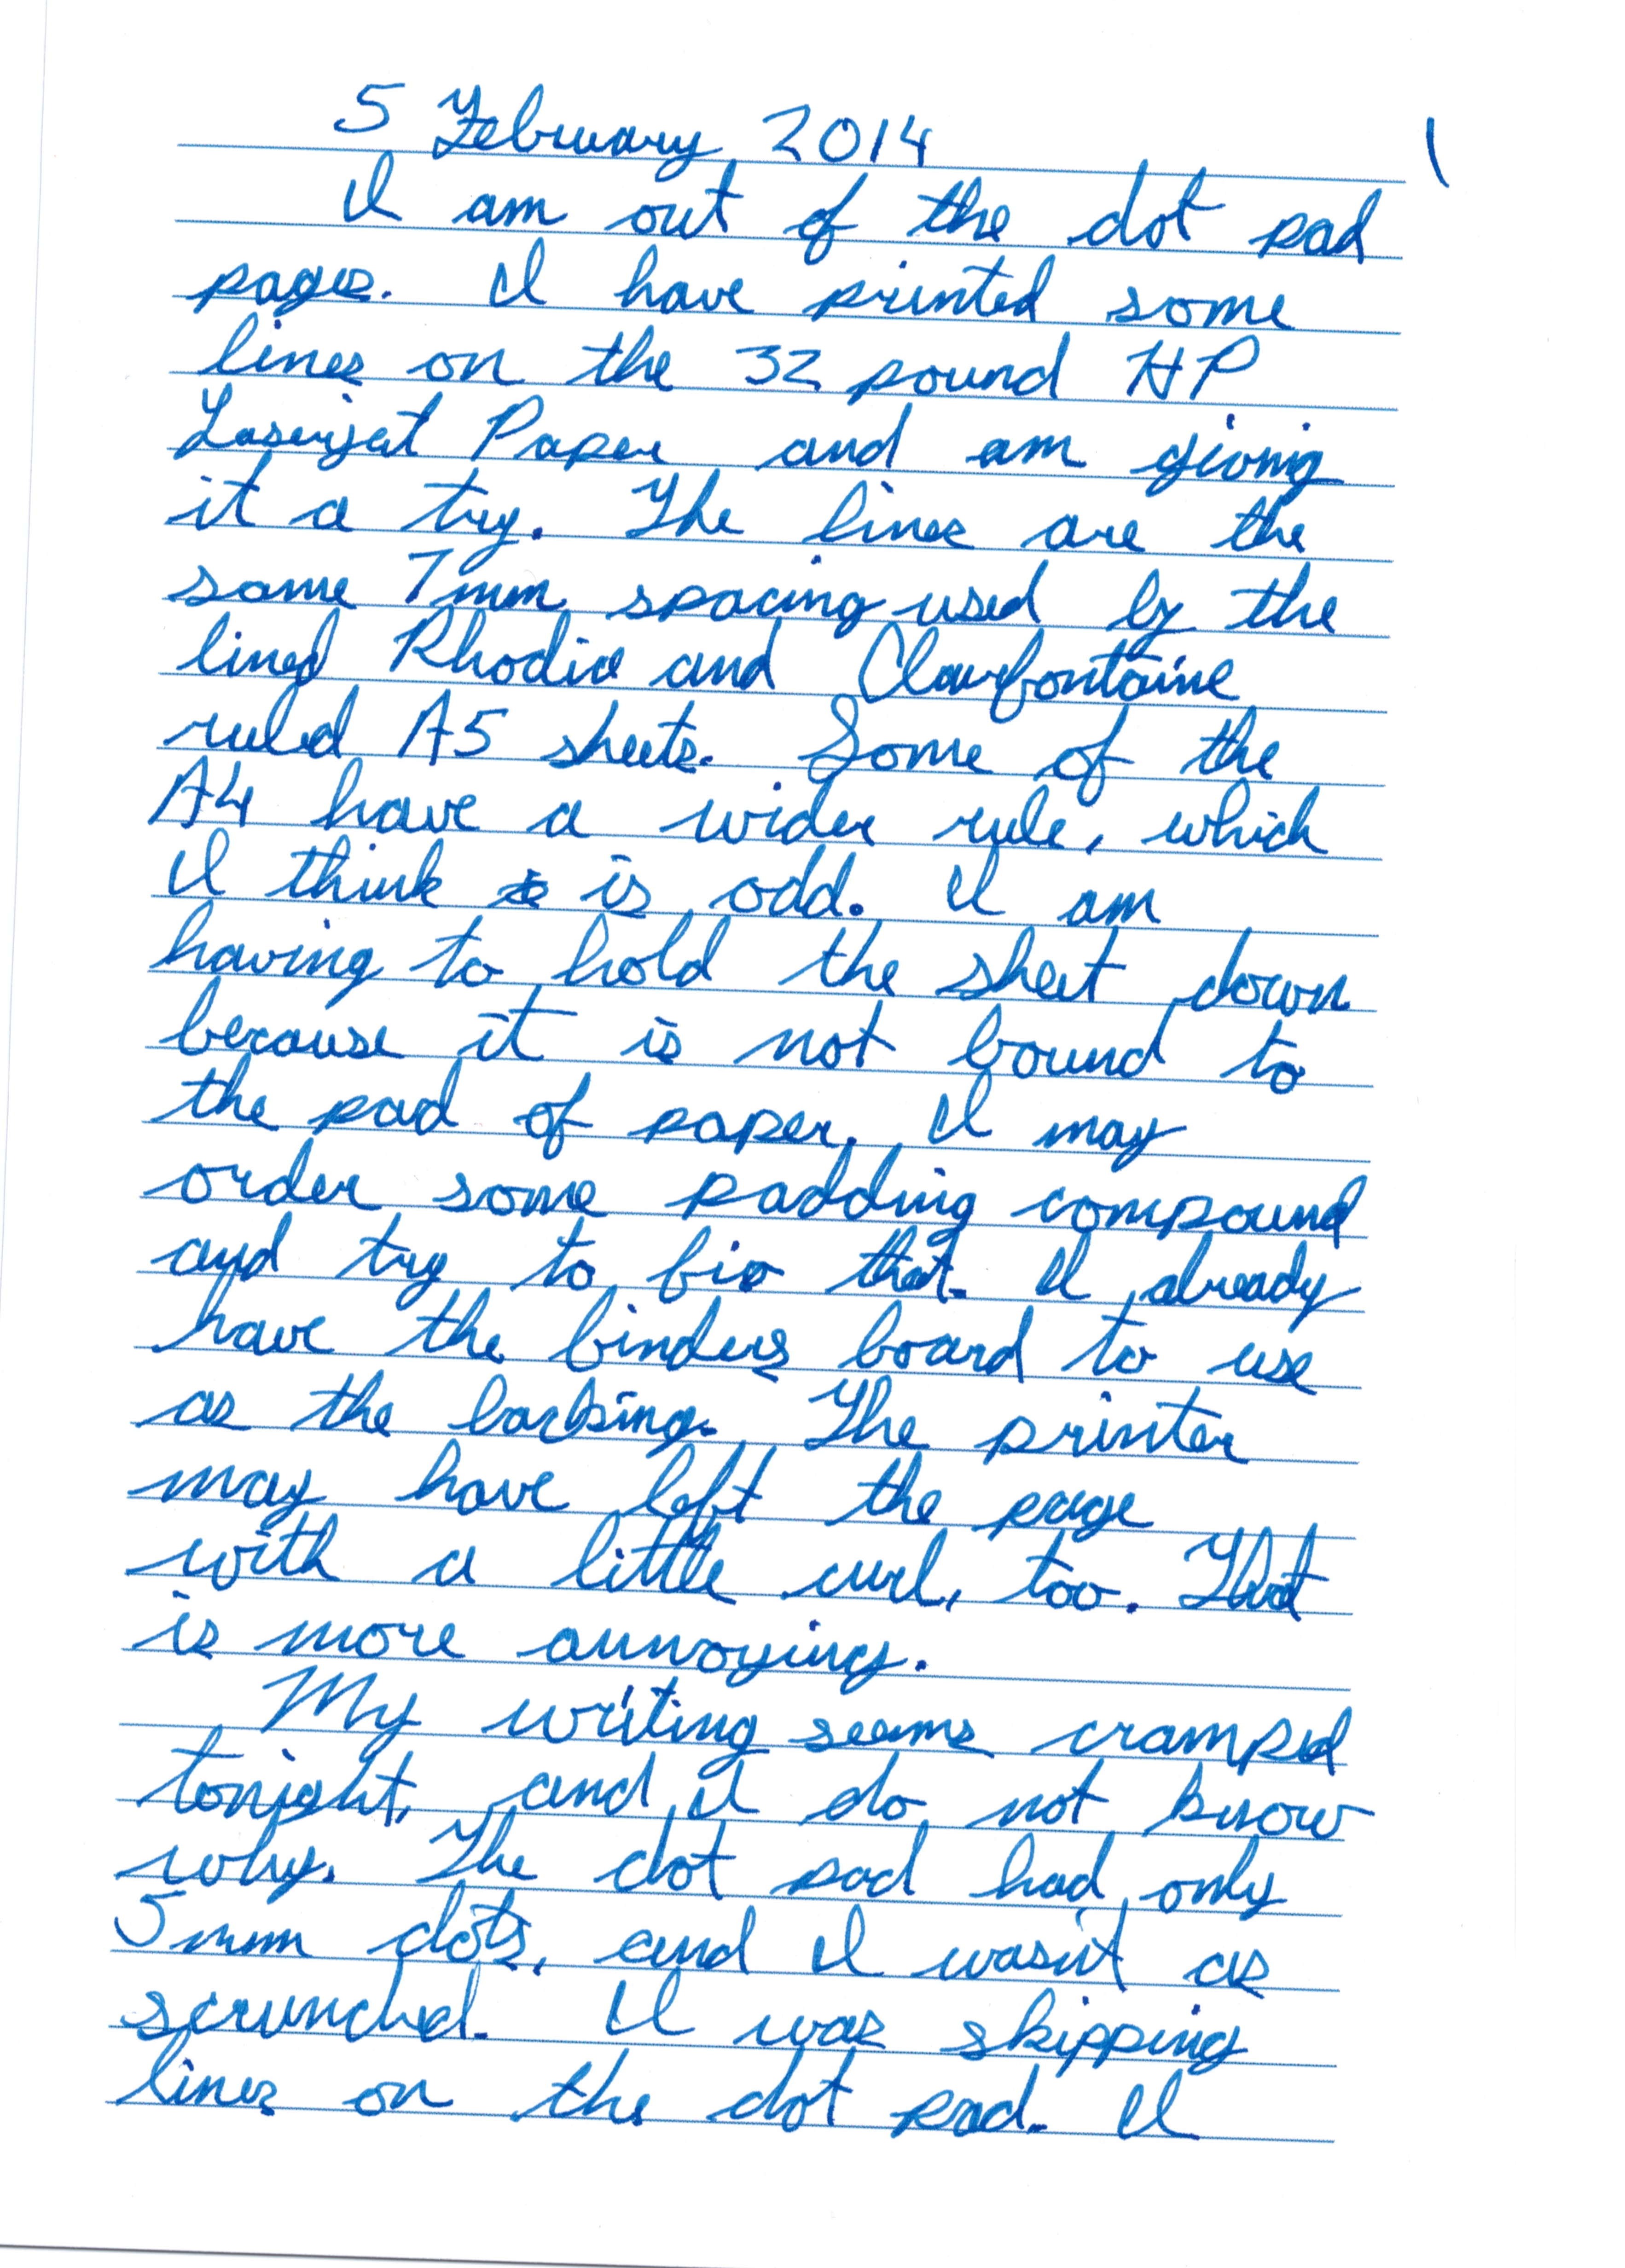 5 February 2014
1
I am out of the dot pad
pages. I have printed some
lines on the 32 pound HP
Laserjet Paper and am giving
it a try. The lines are the
same 7mm spacing used by the
lined Rhodia and Clairfontaine
ruled A5 sheets. Some of the
A4 have a wider rule, which
I think is odd. I am
having to hold the sheet down
because it is not bound to
the pad of paper. I may
order some padding compound
and try to fix that. I already
have the binders board to use
as the backing. The printer
may have left the page
with a little curl, too. That
is more annoying.
My writing seems cramped
tonight, and I do not know
why. The dot pad had only
5mm dots, and I wasn't as
scrunched. I was skipping
lines on the dot pad. I